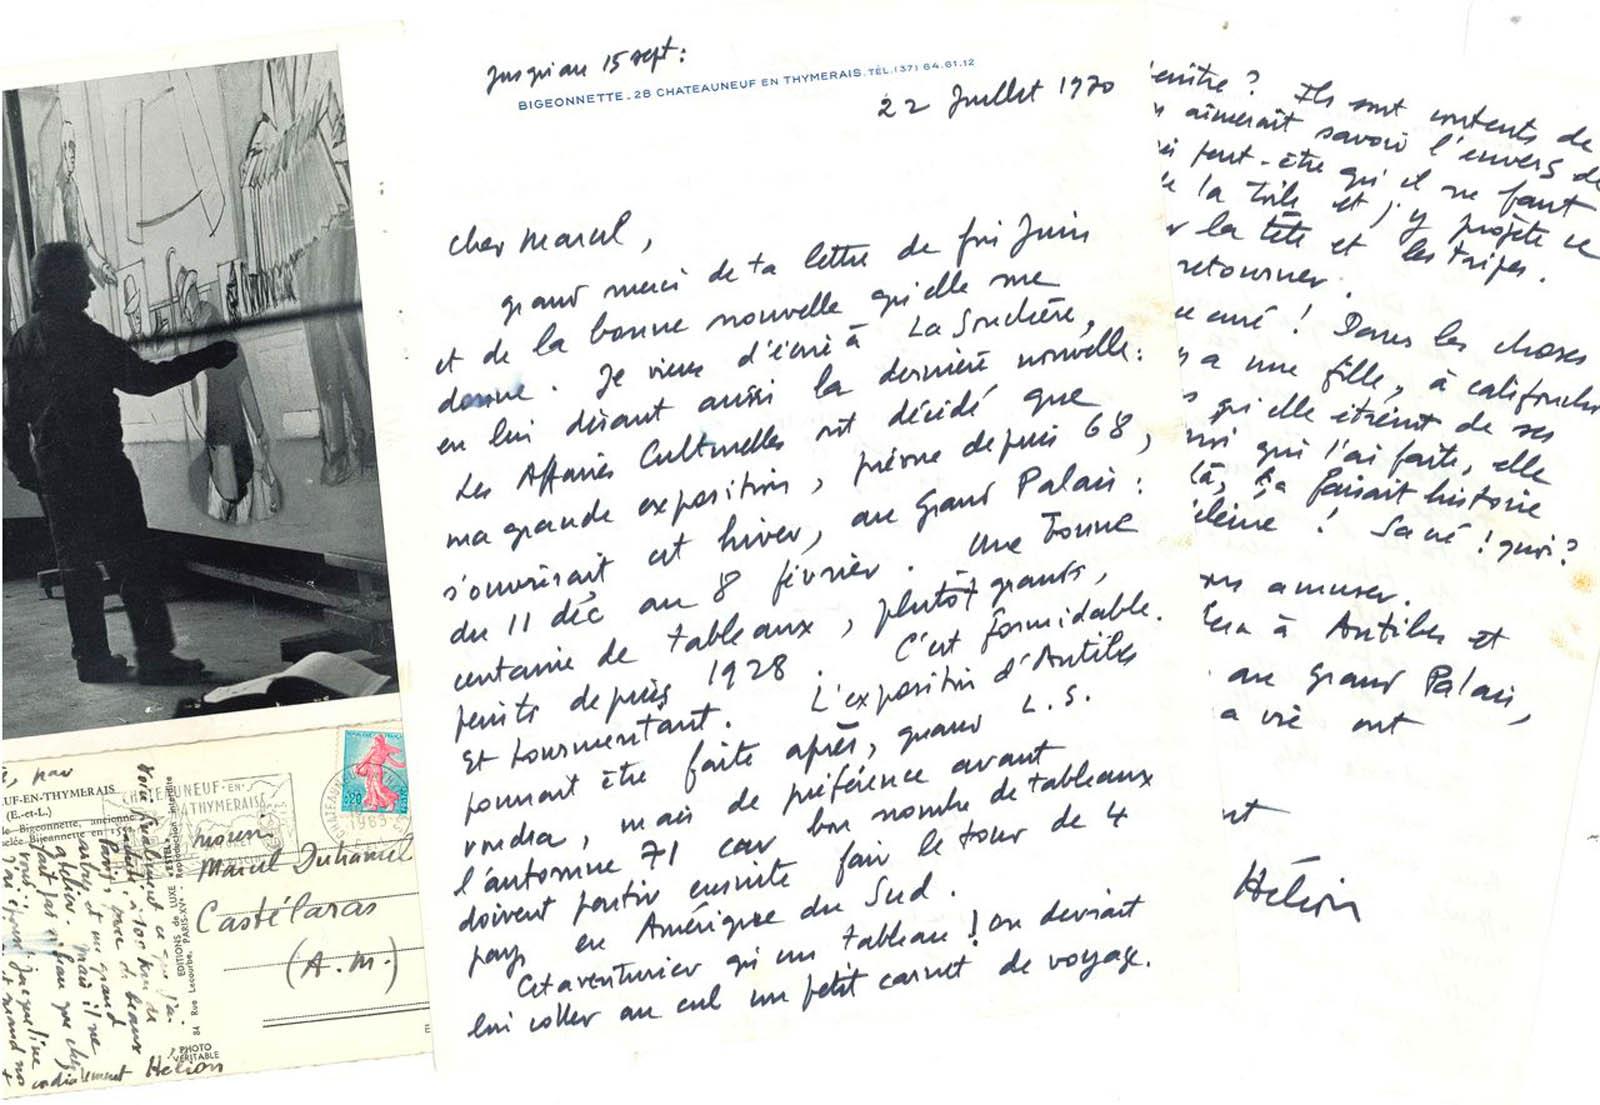 Jusqu'au 15 sept:
BIGEONNETTE. 28 CHATEAUNEUF EN THYMERAIS. TÉL. (37) 64.61.12
22 Juillet 1970
Cher Marcel,
grand merci de ta lettre de fin Juin
et de la bonne nouvelle qu'elle me
donne. Je viens d'écrire à La Souchère,
en lui disant aussi la dernière nouvelle:
Les Affaires Culturelles ont décidé que
ma grande exposition, prévue depuis 68,
s'ouvrirait cet hiver, au Grand Palais:
du 11 déc au 8 février. Une bonne
centaine de tableaux, plutôt grands,
peints depuis 1928. C'est formidable.
Et tourmentant. L'exposition d'Antibes
pourrait être faite après, quand L.S.
voudra, mais de préférence avant
l'automne 71 car bon nombre de tableaux
doivent partir ensuite faire le tour de 4
pays en Amérique du Sud.
Cet aventurier qu'un tableau! on devrait
lui coller au cul un petit carnet de voyage.
? Ils sont contents de
aimerait savoir l'envers de
peut-être qu'il ne faut
la toile et j'y projete ce
la tête et les tripes.
retourner.
! Dans les choses
a une fille, à califourchon
qu'elle étreint de ses
qui l'ai faite, elle
là, ça faisait histoire
! Sacré! quoi?
amuser.
à Antibes et
au Grand Palais,
a vie ont
Hélion
par
UF-EN-THYMERAIS
(E.-et-L.)
Bigeonnette, ancienne
Bijeannette en
CHATEAUNEUF-EN-
THYMERAIS
Voici finalement ce que j'ai
Paris, avec de beaux
arbres et un grand
atelier. Mais il ne
fait pas si beau que chez
vous.
J'ai épousé Jacqueline
cordialement Hélion
ÉDITIONS de LUXE "ESTEL"
84 Rue Lecourbe. PARIS-XVe
Reproduction interdite
PHOTO
VÉRITABLE
0,20
1965
Marcel Duhamel
Castélaras
(A.M.)